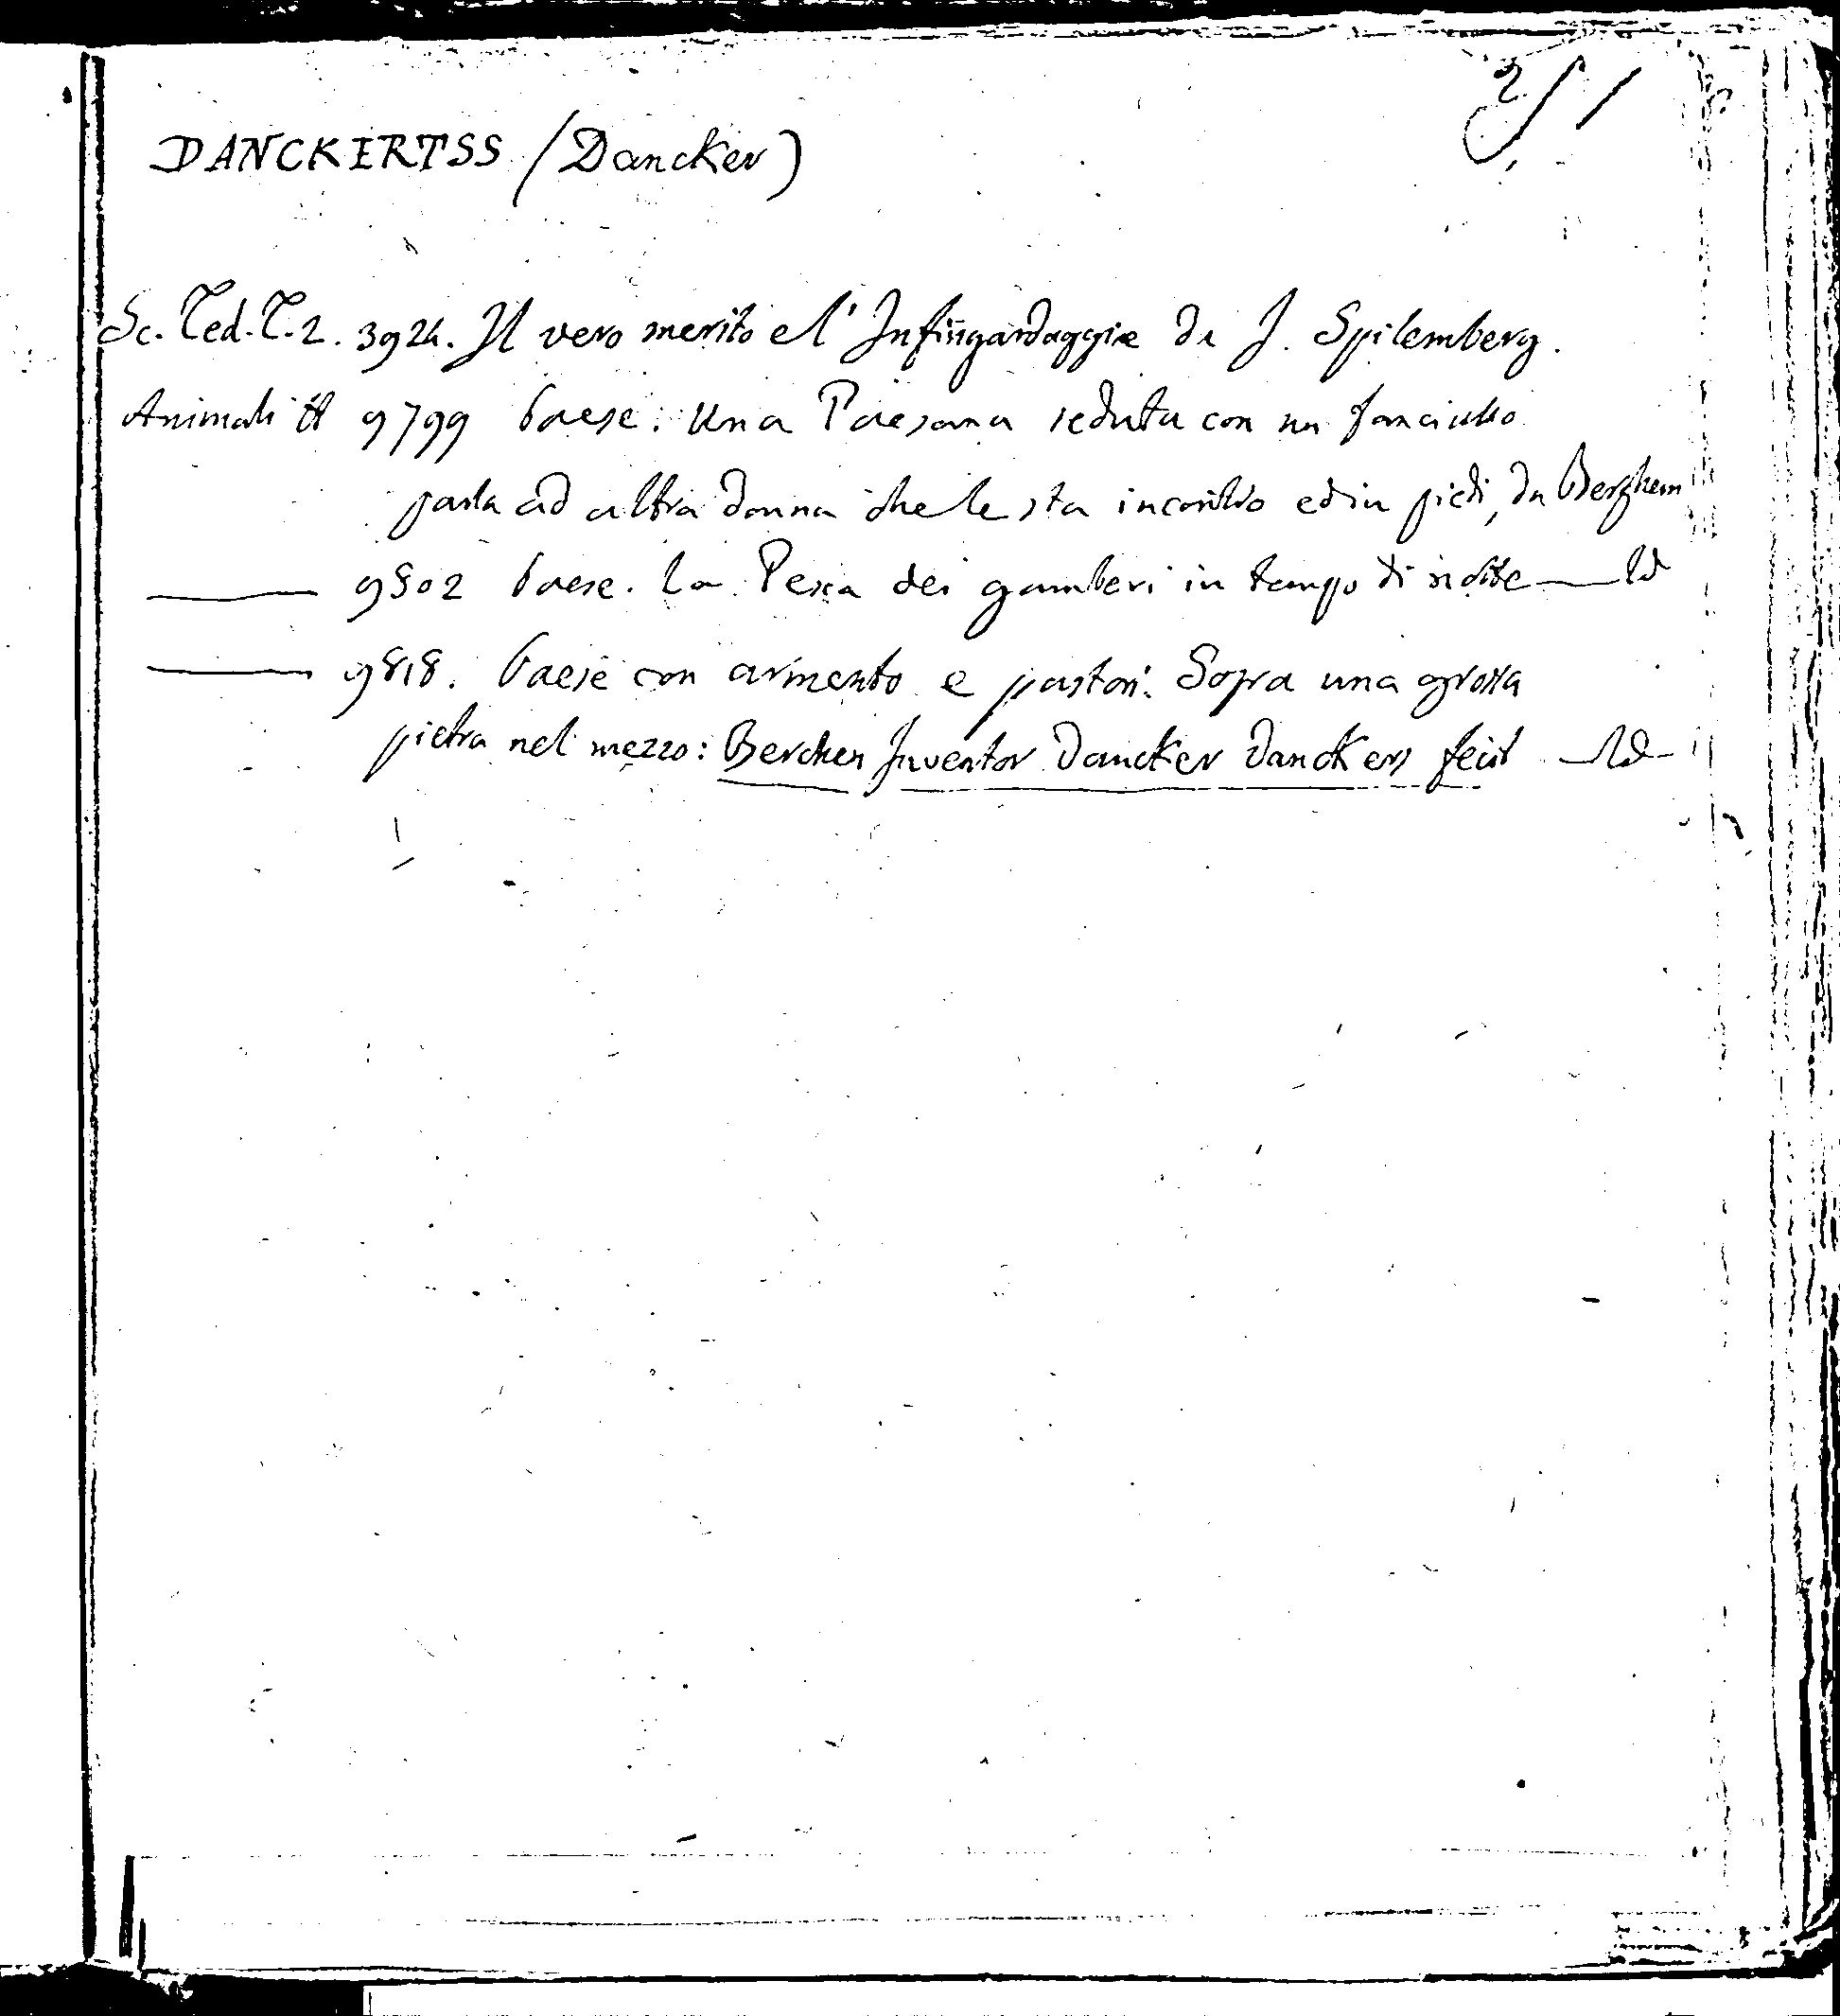 DANCKERTSS (Dancker)
Sc. Ted. T. 2. 3924. Il vero merito e l'Infingardaggie da J. Spilemberg.
Animali 9799 Paese. Una Paesana seduta con un fanciullo
parla ad altra donna che le sta incontro ed in piedi, da Berghem
9802 Paese. La Pesca dei gamberi in tempo di notte — Id
9818. Paese con armento e pastori. Sopra una grossa
pietra nel mezzo: Berchen Inventor Dancker Danckers fecit — Id